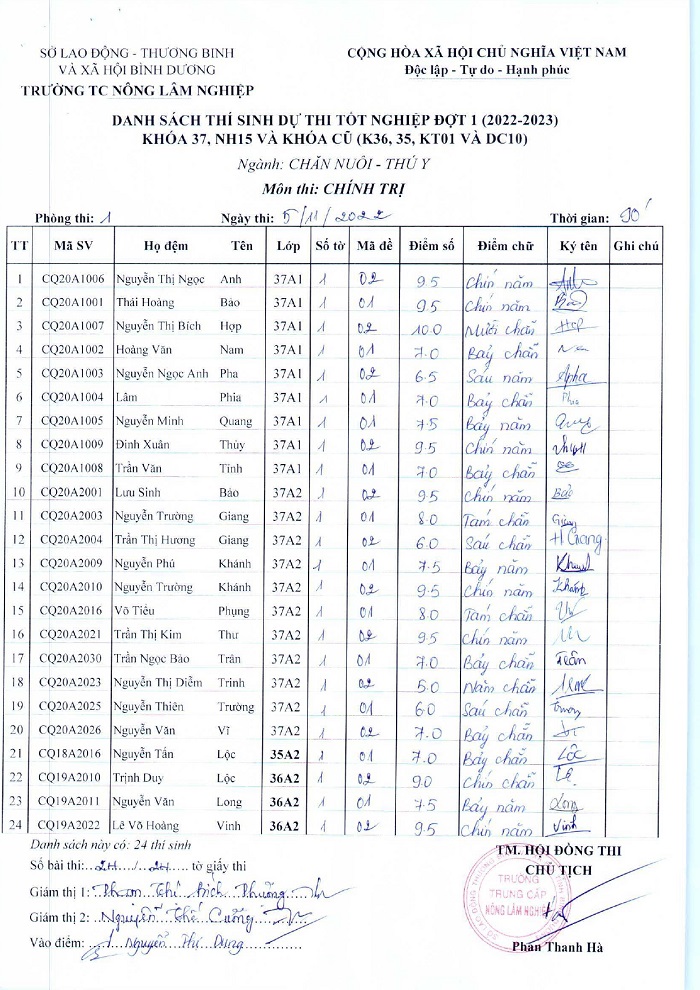 SỞ LAO ĐỘNG - THƯƠNG BINH
VÀ XÃ HỘI BÌNH DƯƠNG
TRƯỜNG TC NÔNG LÂM NGHIỆP
CỘNG HÒA XÃ HỘI CHỦ NGHĨA VIỆT NAM
Độc lập - Tự do - Hạnh phúc
DANH SÁCH THÍ SINH DỰ THI TỐT NGHIỆP ĐỢT 1 (2022-2023)
KHÓA 37, NH15 VÀ KHÓA CŨ (K36, 35, KT01 VÀ DC10)
Ngành: CHĂN NUÔI - THÚ Y
Môn thi: CHÍNH TRỊ
Phòng thi: 1 Ngày thi: 5/11/2022 Thời gian: 90'
TT Mã SV Họ đệm Tên Lớp Số tờ Mã đề Điểm số Điểm chữ Ký tên Ghi chú
1 CQ20A1006 Nguyễn Thị Ngọc Anh 37A1 1 02 9.5 Chín năm Anh
2 CQ20A1001 Thái Hoàng Bảo 37A1 1 01 9.5 Chín năm Bảo
3 CQ20A1007 Nguyễn Thị Bích Hợp 37A1 1 02 10.0 Mười chẵn Hợp
4 CQ20A1002 Hoàng Văn Nam 37A1 1 01 7.0 Bảy chẵn
5 CQ20A1003 Nguyễn Ngọc Anh Pha 37A1 1 02 6.5 Sáu năm Apha
6 CQ20A1004 Lâm Phia 37A1 1 01 7.0 Bảy chẵn
7 CQ20A1005 Nguyễn Minh Quang 37A1 1 01 7.5 Bảy năm
8 CQ20A1009 Đinh Xuân Thùy 37A1 1 02 9.5 Chín năm
9 CQ20A1008 Trần Văn Tính 37A1 1 01 7.0 Bảy chẵn
10 CQ20A2001 Lưu Sinh Bảo 37A2 1 02 9.5 Chín năm Bảo
11 CQ20A2003 Nguyễn Trường Giang 37A2 1 01 8.0 Tám chẵn Giang
12 CQ20A2004 Trần Thị Hương Giang 37A2 1 02 6.0 Sáu chẵn H Giang
13 CQ20A2009 Nguyễn Phú Khánh 37A2 1 01 7.5 Bảy năm
14 CQ20A2010 Nguyễn Trường Khánh 37A2 1 02 9.5 Chín năm Khánh
15 CQ20A2016 Võ Tiểu Phụng 37A2 1 01 8.0 Tám chẵn
16 CQ20A2021 Trần Thị Kim Thư 37A2 1 02 9.5 Chín năm
17 CQ20A2030 Trần Ngọc Bảo Trân 37A2 1 01 7.0 Bảy chẵn Trân
18 CQ20A2023 Nguyễn Thị Diễm Trinh 37A2 1 02 5.0 Năm chẵn
19 CQ20A2025 Nguyễn Thiên Trường 37A2 1 01 6.0 Sáu chẵn
20 CQ20A2026 Nguyễn Văn Vĩ 37A2 1 02 7.0 Bảy chẵn
21 CQ18A2016 Nguyễn Tấn Lộc 35A2 1 01 7.0 Bảy chẵn Lộc
22 CQ19A2010 Trịnh Duy Lộc 36A2 1 02 9.0 Chín chẵn
23 CQ19A2011 Nguyễn Văn Long 36A2 1 01 7.5 Bảy năm Long
24 CQ19A2022 Lê Võ Hoàng Vinh 36A2 1 02 9.5 Chín năm Vinh
Danh sách này có: 24 thí sinh
Số bài thi: 24 / 24 tờ giấy thi
Giám thị 1: Phan Thị Bích Phượng
Giám thị 2: Nguyễn Thế Cường
Vào điểm: Nguyễn Thị Dung
TM. HỘI ĐỒNG THI
CHỦ TỊCH
TRƯỜNG
TRUNG CẤP
NÔNG LÂM NGHIỆP
Phan Thanh Hà